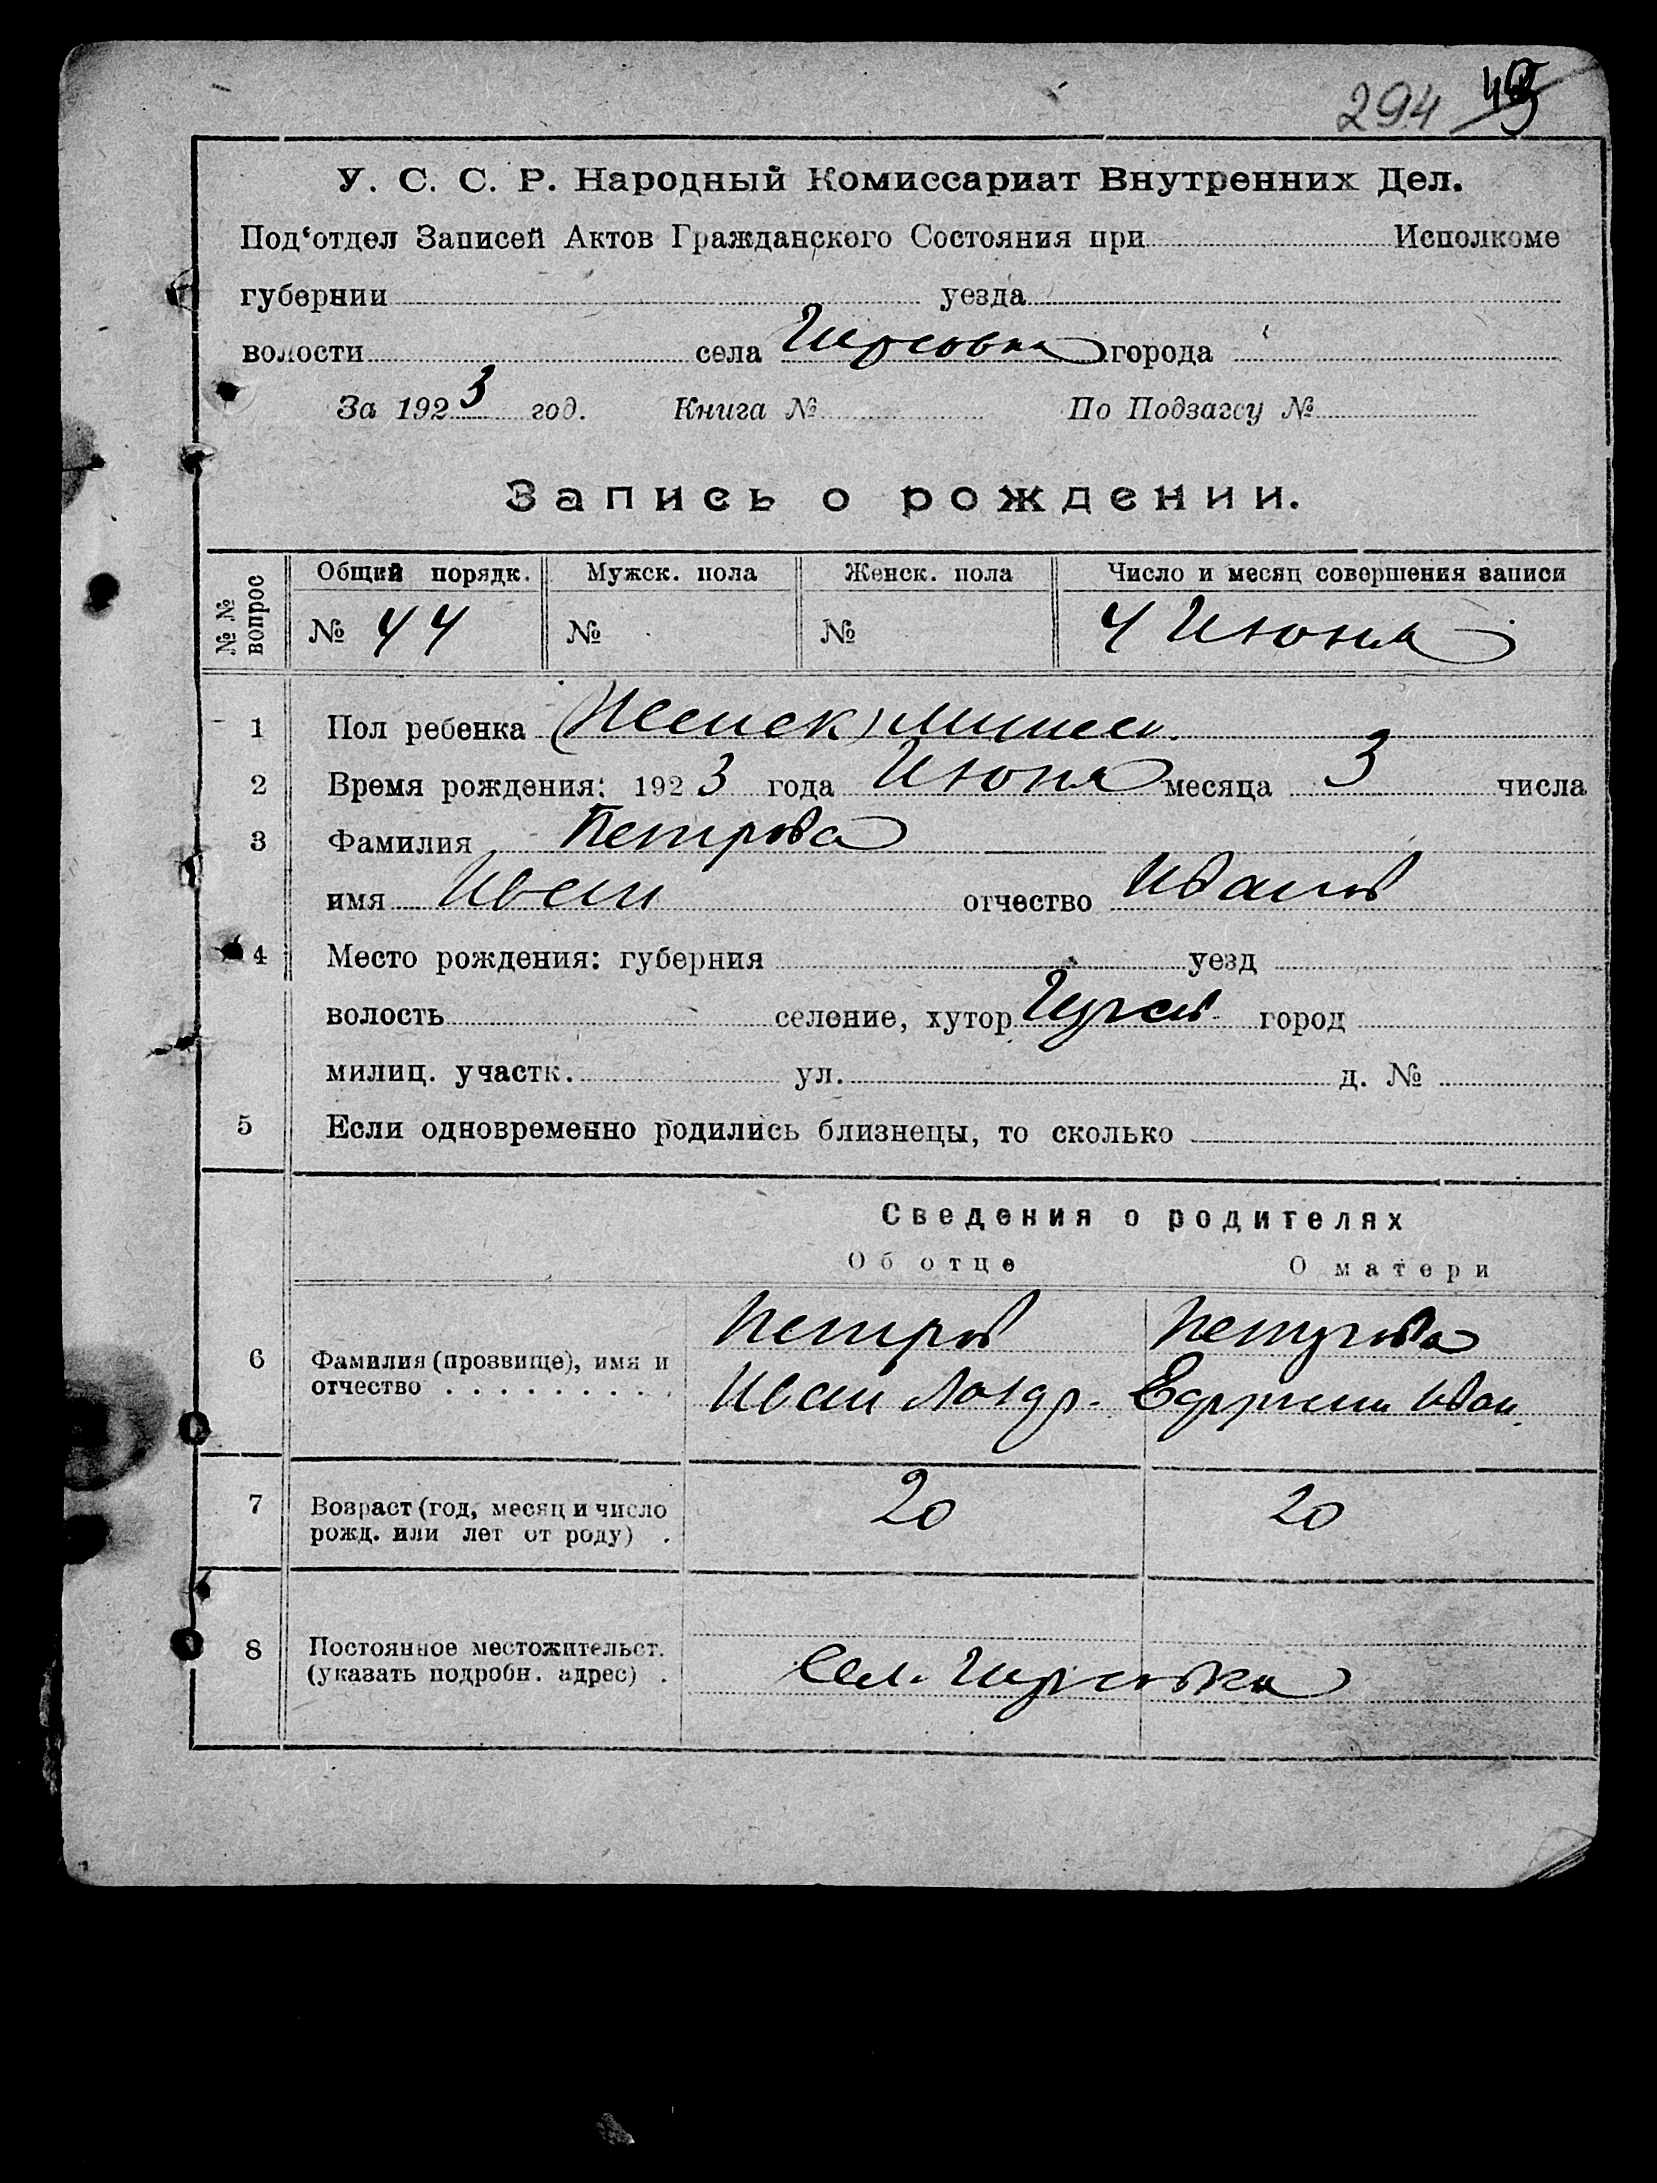 294 45
У. С. С. Р. Народный Комиссариат Внутренних Дел.
Под‘отдел Записей Актов Гражданского Состояния при Исполкоме
губернии уезда
волости села города
За 1923 год. Книга № По Подзагсу №
Запись о рождении.
№ № вопрос Общий порядк. Мужск. пола Женск. пола Число и месяц совершения записи
№ 44 № № 4 Июня
1 Пол ребенка (Женск)
2 Время рождения: 1923 года Июня месяца 3 числа
3 Фамилия Петрова
имя Иван отчество Иванов
4 Место рождения: губерния уезд
волость селение, хутор город
милиц. участк. ул. д. №
5 Если одновременно родились близнецы, то сколько
Сведения о родителях
Об отце О матери
Петров Петрова
6 Фамилия (прозвище), имя и
отчество . . . . . . . . . . Иван Иван.
7 Возраст (год, месяц и число 20 20
рожд. или лет от роду) .
8 Постоянное местожительст.
(указать подробн. адрес) . Сел.